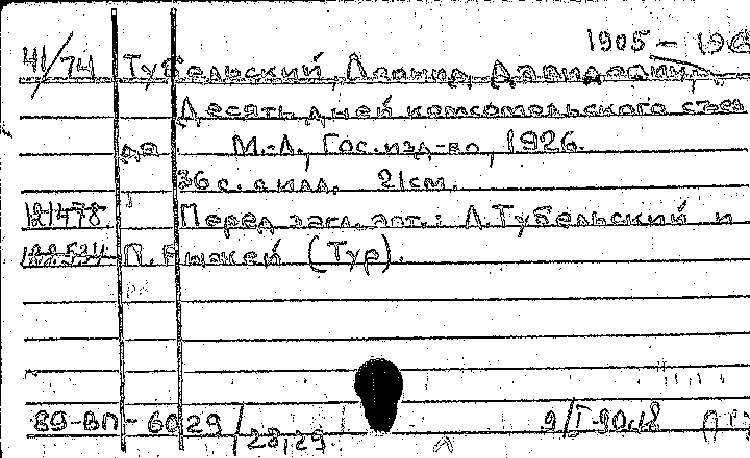 1905 -
41/74 Тубельский, Леонид Давидович.
Десять дней комсомольского съез
да. М.-Л., Гос. изд-во, 1926.
36 с. с илл. 21 см.
121478 Перед загл. авт.: Л. Тубельский и
П. Рыжей (Тур).
89-ВП-6029/28,29 9/I-90.18